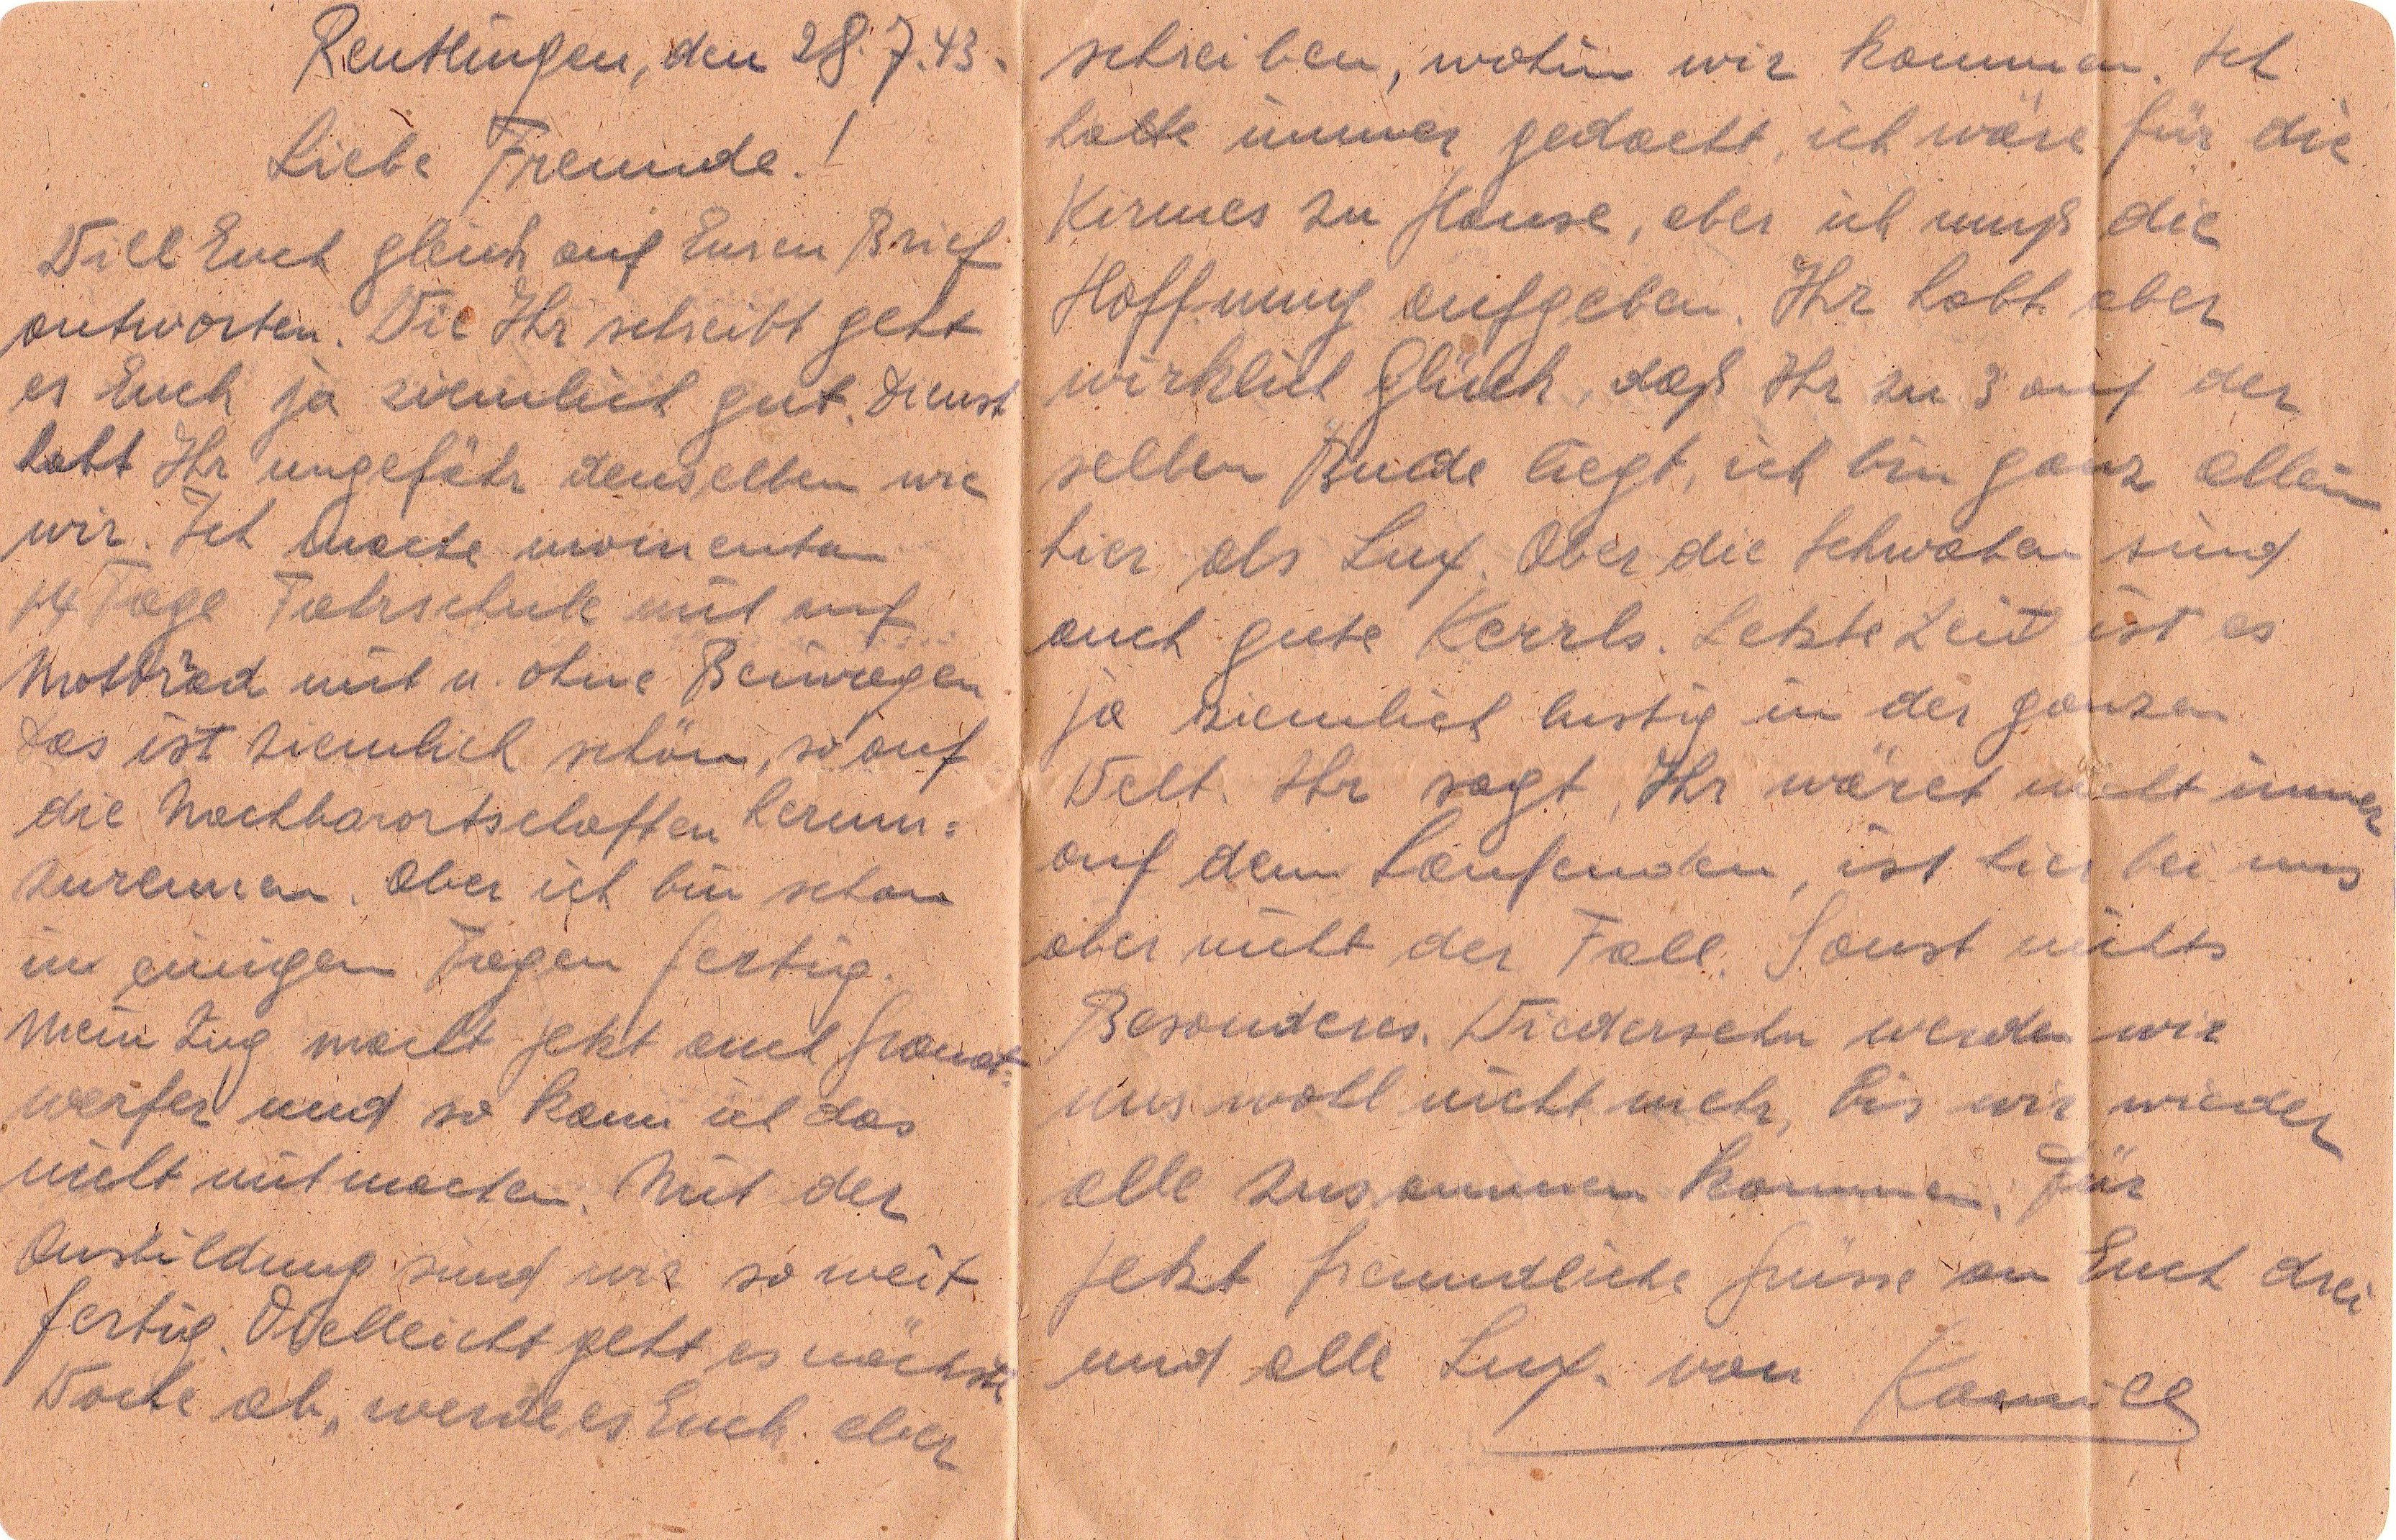 Reutlingen, den 28.7.43.
Liebe Freunde!
Will Euch gleich auf Euren Brief
antworten. Wie Ihr schreibt geht
es Euch ja ziemlich gut. Dienst
habt Ihr ungefähr denselben wie
wir. Ich mache momentan
14 Tage Fahrschule mit auf
Motorrad mit u. ohne Beiwagen
das ist ziemlich schön, so auf
die Nachbarortschaften herum=
zurennen. Aber ich bin schon
in einigen Tagen fertig.
Mein Zug macht jetzt auch Granat=
werfer und so kann ich das
nicht mitmachen. Mit der
Ausbildung sind wir so weit
fertig. Vielleicht geht es nächste
Woche ab, werde es Euch aber
schreiben, wohin wir kommen. Ich
hatte immer gedacht, ich wäre für die
Kirmes zu Hause, aber ich muß die
Hoffnung aufgeben. Ihr habt aber
wirklich Glück, daß Ihr zu 3 auf der
selben Bude liegt, ich bin ganz allein
hier als Lux. Aber die Schwaben sind
auch gute Kerrls. Letzte Zeit ist es
ja ziemlich lustig in der ganzen
Welt. Ihr sagt, Ihr wäret nicht immer
auf dem Laufenden, ist hier bei uns
aber nicht der Fall. Sonst nichts
Besonderes. Wiedersehn werden wir
uns wohl nicht mehr, bis wir wieder
alle zusammen kommen. Für
jetzt freundliche Grüsse an Euch drei
und alle Lux. von Kamill